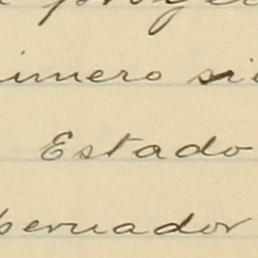 proye
imero si
Estado
bernador